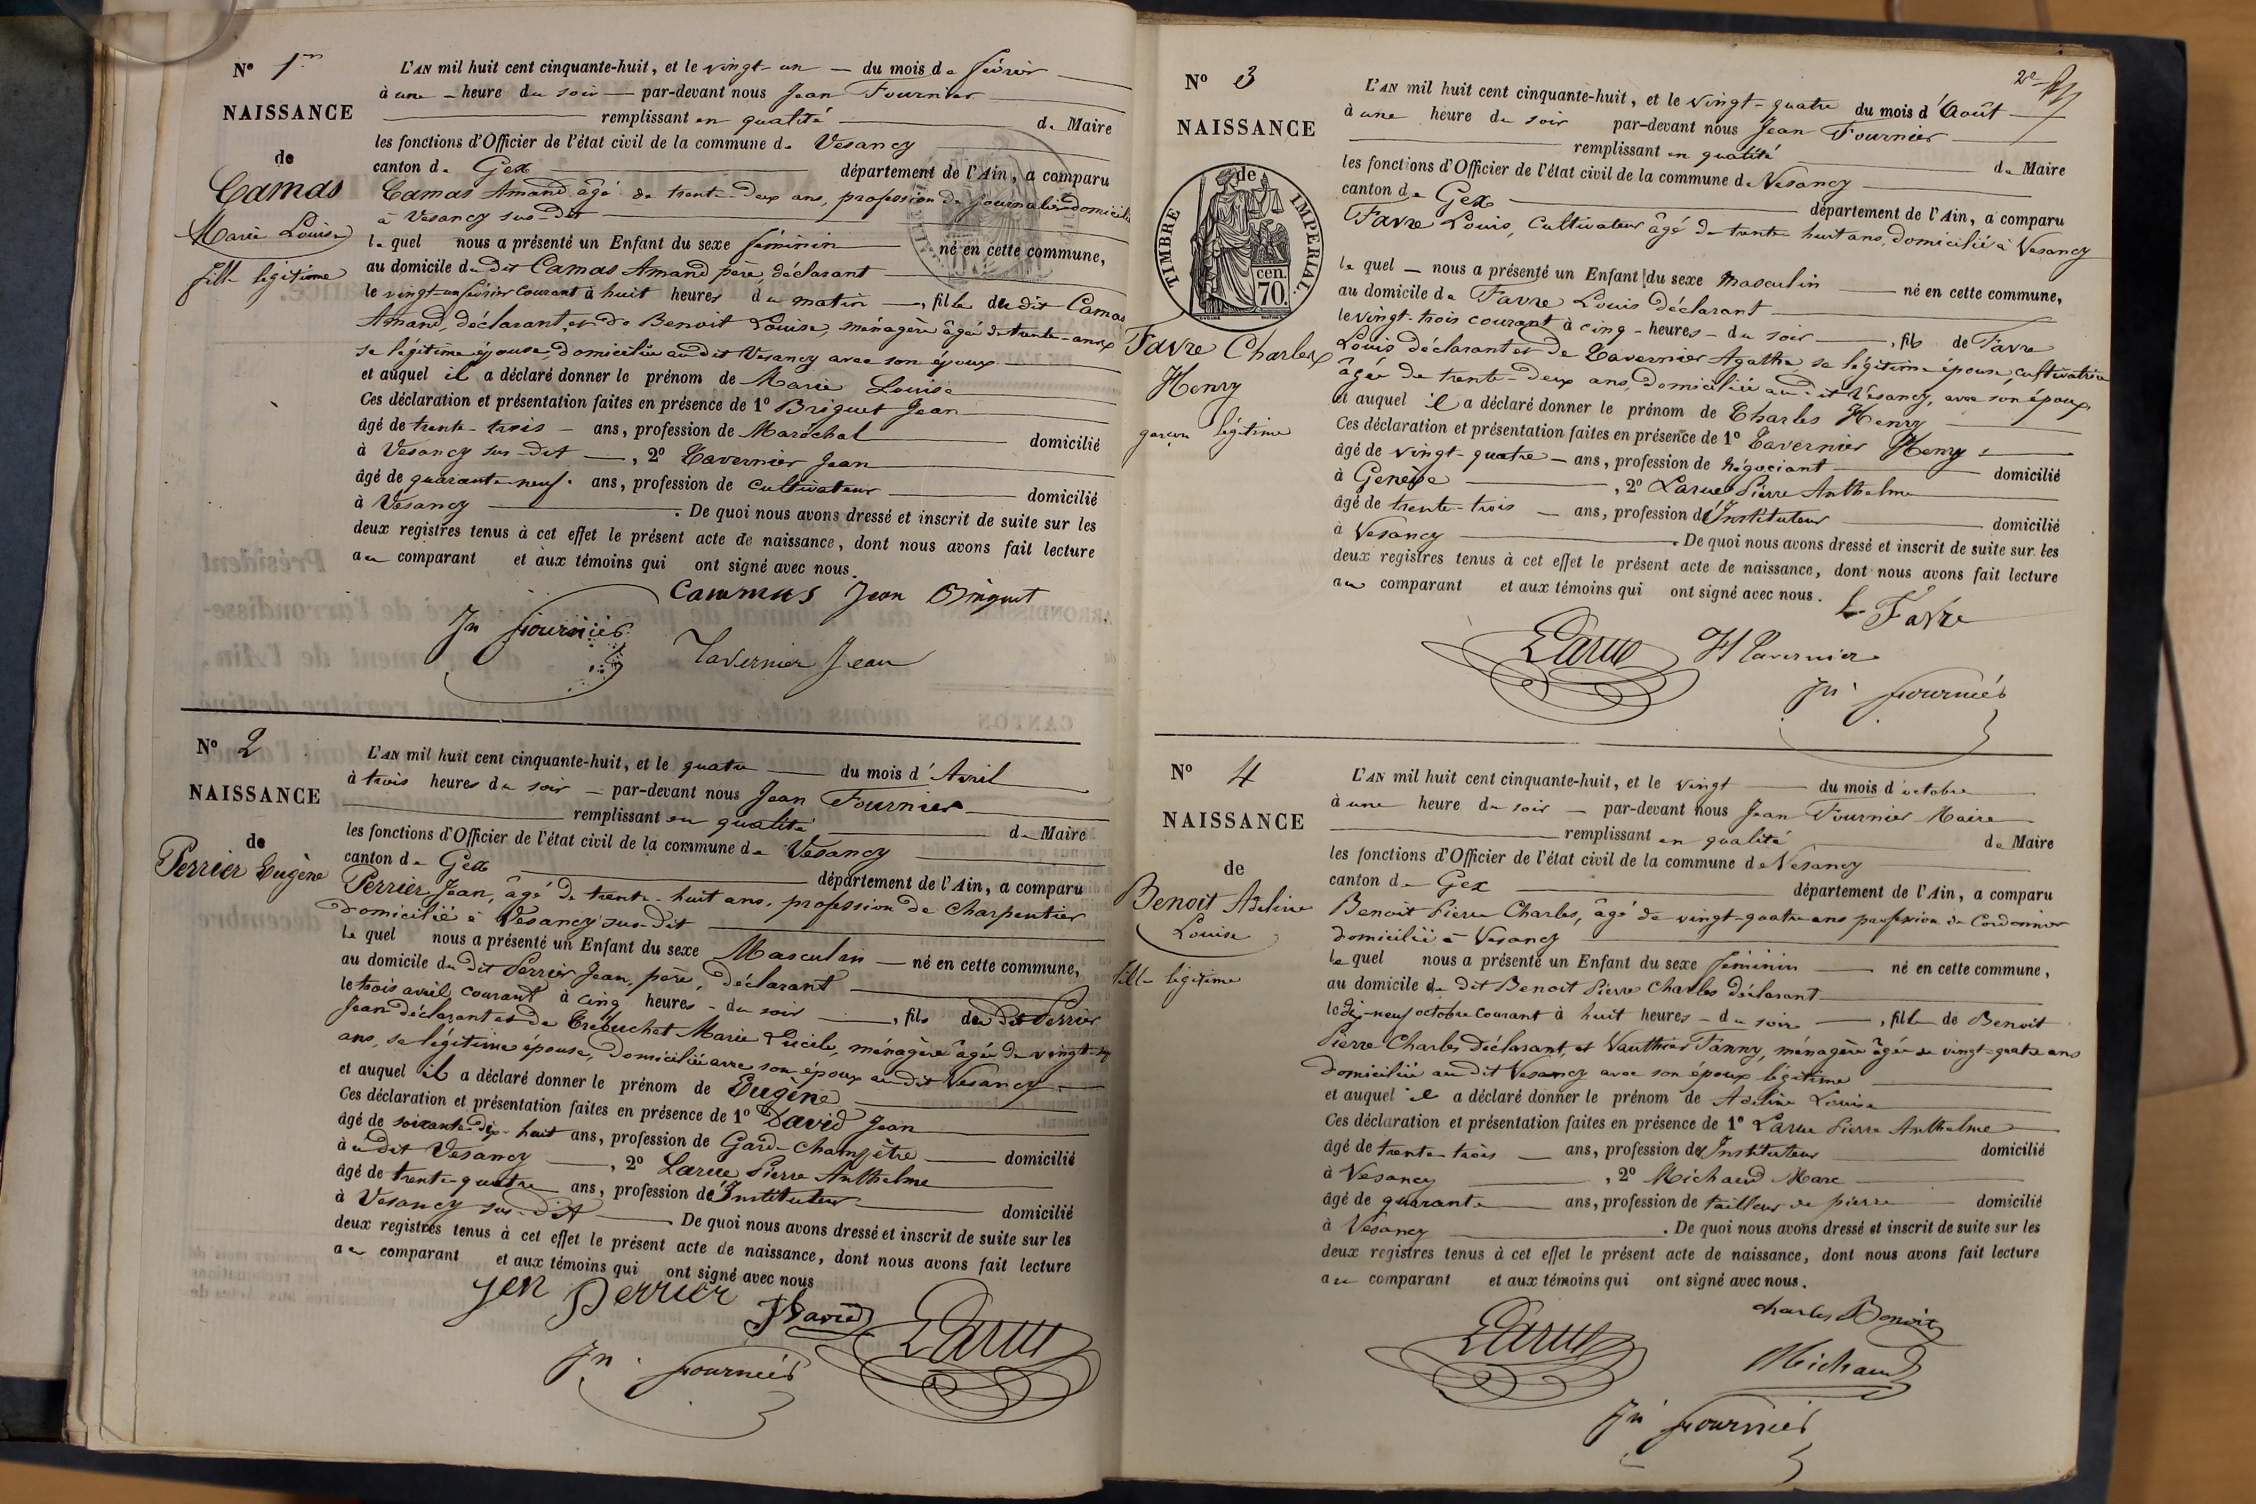 No 1er
NAISSANCE
de
Camas
Marie Louise
fille légitime
L'AN mil huit cent cinquante-huit, et le vingt-un du mois de février
à une heure du soir par-devant nous Jean Fournier
remplissant en qualité de Maire
les fonctions d'Officier de l'état civil de la commune de Vesancy
canton de Gex département de l'Ain, a comparu
Camas Amand âgé de trente-deux ans, profession de journalier domicilié
à Vesancy sus-dit
lequel nous a présenté un Enfant du sexe féminin né en cette commune,
au domicile du dit Camas Amand père, déclarant
le vingt-un février courant à huit heures du matin, fille du dit Camas
Amand, déclarant, et de Benoit Louise, ménagère âgée de trente-ans
sa légitime épouse, domiciliée au dit Vesancy avec son époux
et auquel il a déclaré donner le prénom de Marie Louise
Ces déclaration et présentation faites en présence de 1º Briguet Jean
âgé de trente-trois ans, profession de Maréchal domicilié
à Vesancy sus-dit, 2º Tavernier Jean
âgé de quarante-neuf ans, profession de Cultivateur domicilié
à Vesancy. De quoi nous avons dressé et inscrit de suite sur les
deux registres tenus à cet effet le présent acte de naissance, dont nous avons fait lecture
au comparant et aux témoins qui ont signé avec nous.
Cammas Jean Briguet
Jn Fournier
Tavernier Jean
No 2
NAISSANCE
de
Perrier Eugène
L'AN mil huit cent cinquante-huit, et le quatre du mois d'Avril
à trois heures du soir par-devant nous Jean Fournier
remplissant en qualité de Maire
les fonctions d'Officier de l'état civil de la commune de Vesancy
canton de Gex département de l'Ain, a comparu
Perrier Jean, âgé de trente-huit ans, profession de Charpentier
domicilié à Vesancy sus-dit
lequel nous a présenté un Enfant du sexe Masculin né en cette commune,
au domicile du dit Perrier Jean, père, déclarant
le trois avril courant à cinq heures du soir, fils du dit Perrier
Jean déclarant et de Trébuchet Marie Lucile, ménagère âgée de vingt-
ans, sa légitime épouse, domiciliée avec son époux au dit Vesancy
et auquel il a déclaré donner le prénom de Eugène
Ces déclaration et présentation faites en présence de 1º David Jean
âgé de soixante-dix-huit ans, profession de Garde-Champêtre domicilié
à au dit Vesancy, 2º Larue Pierre Anthelme
âgé de trente-quatre ans, profession d'Instituteur domicilié
à Vesancy sus-dit De quoi nous avons dressé et inscrit de suite sur les
deux registres tenus à cet effet le présent acte de naissance, dont nous avons fait lecture
au comparant et aux témoins qui ont signé avec nous
Jen Perrier
J David
Larue
Jn Fournier
2e
No 3
NAISSANCE
de
TIMBRE IMPERIAL
70. cen.
Favre Charles
Henry
garçon légitime
L'AN mil huit cent cinquante-huit, et le vingt-quatre du mois d'Août
à une heure du soir par-devant nous Jean Fournier
remplissant en qualité de Maire
les fonctions d'Officier de l'état civil de la commune de Vesancy
canton de Gex département de l'Ain, a comparu
Favre Louis, Cultivateur âgé de trente huit ans, domicilié à Vesancy
lequel nous a présenté un Enfant du sexe masculin né en cette commune,
au domicile de Favre Louis déclarant
le vingt-trois courant à cinq heures du soir, fils de Favre
Louis déclarant et de Tavernier Agathe, sa légitime épouse, cultivatrice
âgée de trente-deux ans, domiciliée au dit Vesancy, avec son époux,
et auquel il a déclaré donner le prénom de Charles Henry
Ces déclaration et présentation faites en présence de 1º Tavernier Henry
âgé de vingt-quatre ans, profession de négociant domicilié
à Genève, 2º Larue Pierre Anthelme
âgé de trente-trois ans, profession d'Instituteur domicilié
à Vesancy. De quoi nous avons dressé et inscrit de suite sur les
deux registres tenus à cet effet le présent acte de naissance, dont nous avons fait lecture
au comparant et aux témoins qui ont signé avec nous.
L. Favre
Larue H Tavernier
Jn Fournier
No 4
NAISSANCE
de
Benoit Adeline
Louise
fille légitime
L'AN mil huit cent cinquante-huit, et le vingt du mois d'octobre
à une heure du soir par-devant nous Jean Fournier Maire
remplissant en qualité de Maire
les fonctions d'Officier de l'état civil de la commune de Vesancy
canton de Gex département de l'Ain, a comparu
Benoit Pierre Charles, âgé de vingt-quatre ans profession de Cordonnier
domicilié à Vesancy
lequel nous a présenté un Enfant du sexe féminin né en cette commune,
au domicile du dit Benoit Pierre Charles déclarant
le dix-neuf octobre courant à huit heures du soir, fille de Benoit
Pierre Charles déclarant, et Vauthier Fanny, ménagère âgée de vingt-quatre ans
domiciliée au dit Vesancy avec son époux légitime
et auquel il a déclaré donner le prénom de Adeline Louise
Ces déclaration et présentation faites en présence de 1º Larue Pierre Anthelme
âgé de trente-trois ans, profession d'Instituteur domicilié
à Vesancy, 2º Michaud Marc
âgé de quarante ans, profession de tailleur de pierre domicilié
à Vesancy. De quoi nous avons dressé et inscrit de suite sur les
deux registres tenus à cet effet le présent acte de naissance, dont nous avons fait lecture
au comparant et aux témoins qui ont signé avec nous.
charles Benoit
Larue
Michaud
Jn Fournier